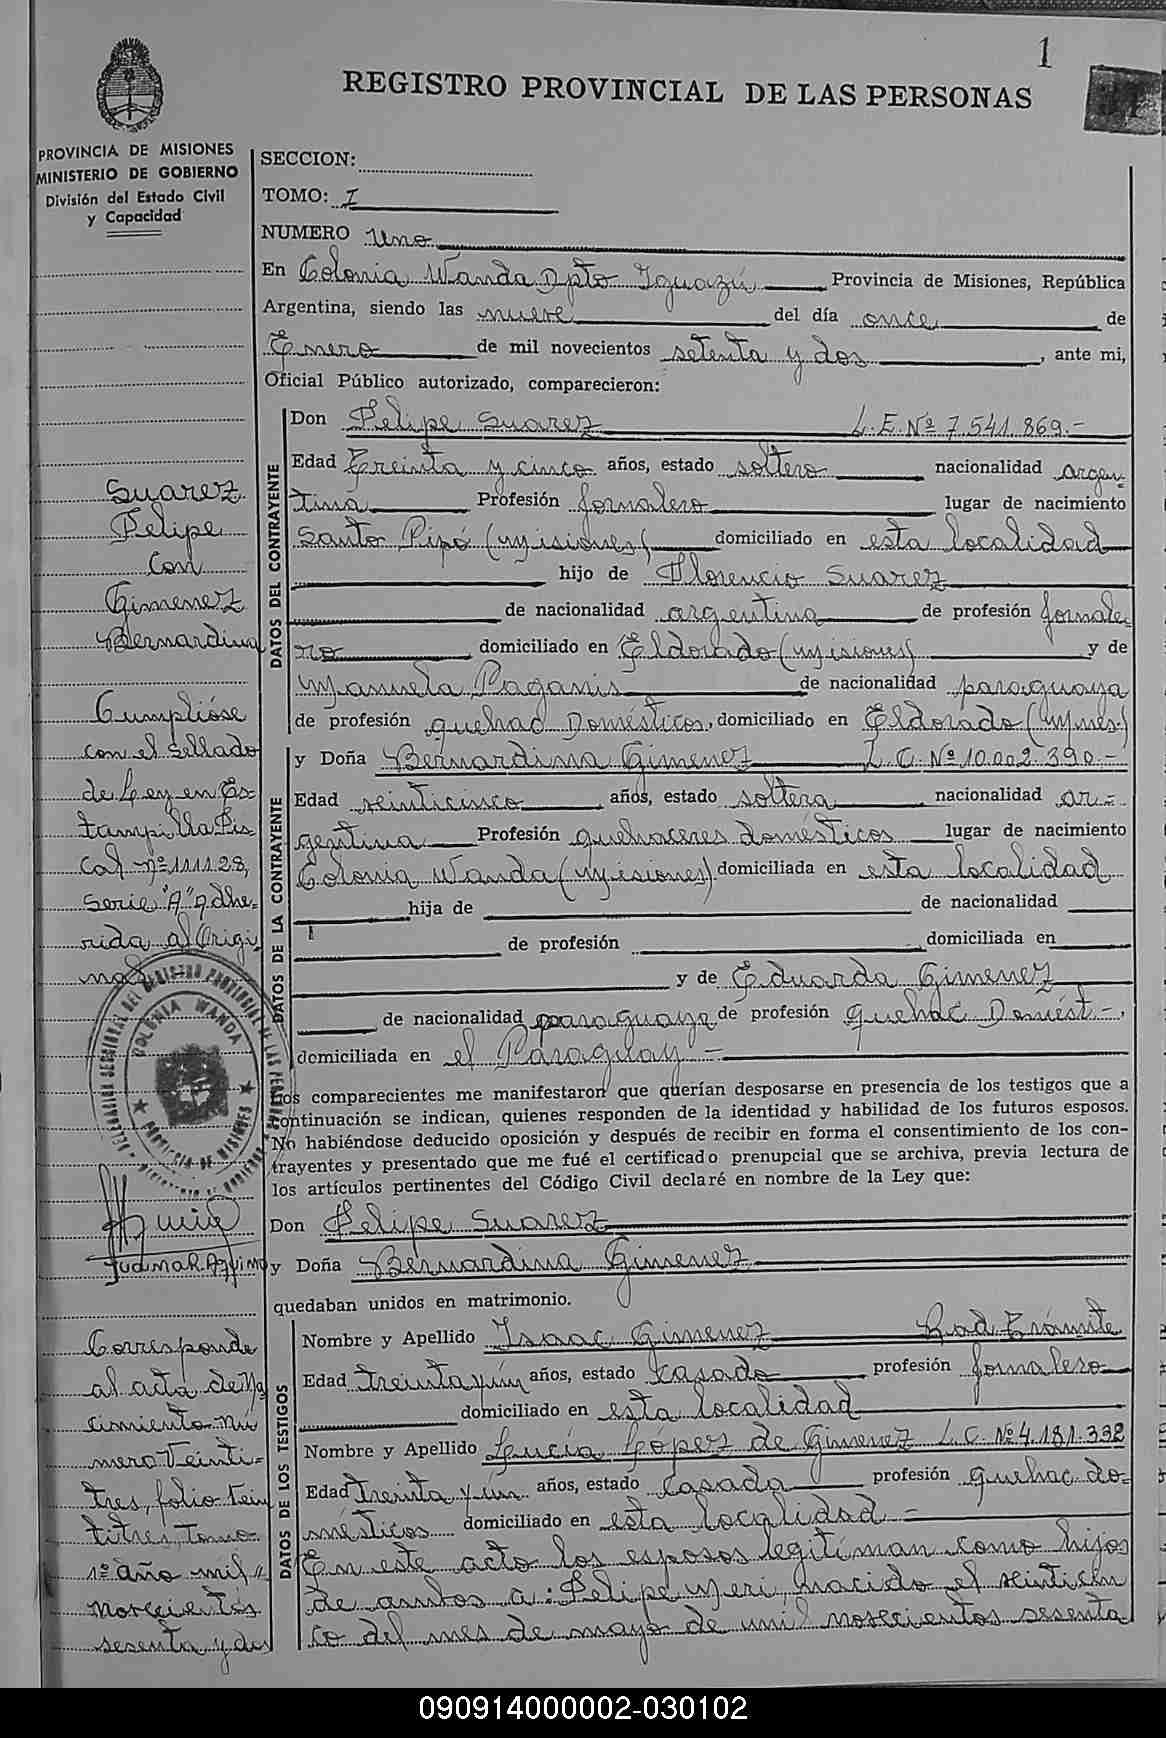 1
REGISTRO PROVINCIAL DE LAS PERSONAS
PROVINCIA DE MISIONES
MINISTERIO DE GOBIERNO
División del Estado Civil
y Capacidad
SECCION:
TOMO: I
NUMERO Uno
En Colonia Wanda Dpto Iguazú Provincia de Misiones, República
Argentina, siendo las nueve del día once de
Enero de mil novecientos setenta y dos, ante mi,
Oficial Público autorizado, comparecieron:
DATOS DEL CONTRAYENTE
Don Felipe Suarez L.E. Nº 7.541.869.-
Edad Treinta y cinco años, estado soltero nacionalidad argen-
tina Profesión Jornalero lugar de nacimiento
Santo Pipó (Misiones) domiciliado en esta localidad
hijo de Florencio Suarez
de nacionalidad argentina de profesión Jornale-
ro domiciliado en Eldorado (Misiones) y de
Manuela Paganis de nacionalidad paraguaya
de profesión quehac Domésticos, domiciliado en Eldorado (Mnes)
DATOS DE LA CONTRAYENTE
y Doña Bernardina Gimenez L.C. Nº 10.002.390.-
Edad veinticinco años, estado soltera nacionalidad ar=
gentina Profesión quehaceres domésticos lugar de nacimiento
Colonia Wanda (Misiones) domiciliada en esta localidad
hija de de nacionalidad
de profesión domiciliada en
y de Eduarda Gimenez
de nacionalidad paraguaya de profesión quehac Domést-,
domiciliada en el Paraguay -
Los comparecientes me manifestaron que querían desposarse en presencia de los testigos que a
continuación se indican, quienes responden de la identidad y habilidad de los futuros esposos.
No habiéndose deducido oposición y después de recibir en forma el consentimiento de los con-
trayentes y presentado que me fué el certificado prenupcial que se archiva, previa lectura de
los artículos pertinentes del Código Civil declaré en nombre de la Ley que:
Don Felipe Suarez
y Doña Bernardina Gimenez
quedaban unidos en matrimonio.
DATOS DE LOS TESTIGOS
Nombre y Apellido Isaac Gimenez Rad. Trámite
Edad treinta y un años, estado casado profesión Jornalero
domiciliado en esta localidad
Nombre y Apellido Lucía López de Gimenez L.C. Nº 4.181.332
Edad Treinta y un años, estado casada profesión quehac do-
mésticos domiciliado en esta localidad =
En este acto los esposos legitiman como hijos
de ambos a: Felipe Neri, nacido el veinticin
co del mes de mayo de mil novecientos sesenta
Suarez
Felipe
Con
Gimenez
Bernardina
Cumplióse
con el Sellado
de Ley en Es
tampilla Fis
cal nº 111128,
Serie "A" Adhe-
rida al Origi
nal
COLONIA WANDA
PROVINCIA DE MISIONES
Corresponde
al acta de Na
cimiento Nú
mero Veinti=
tres, folio Vein
titres, Tomo
1º año mil
novecientos
sesenta y dos
090914000002-030102